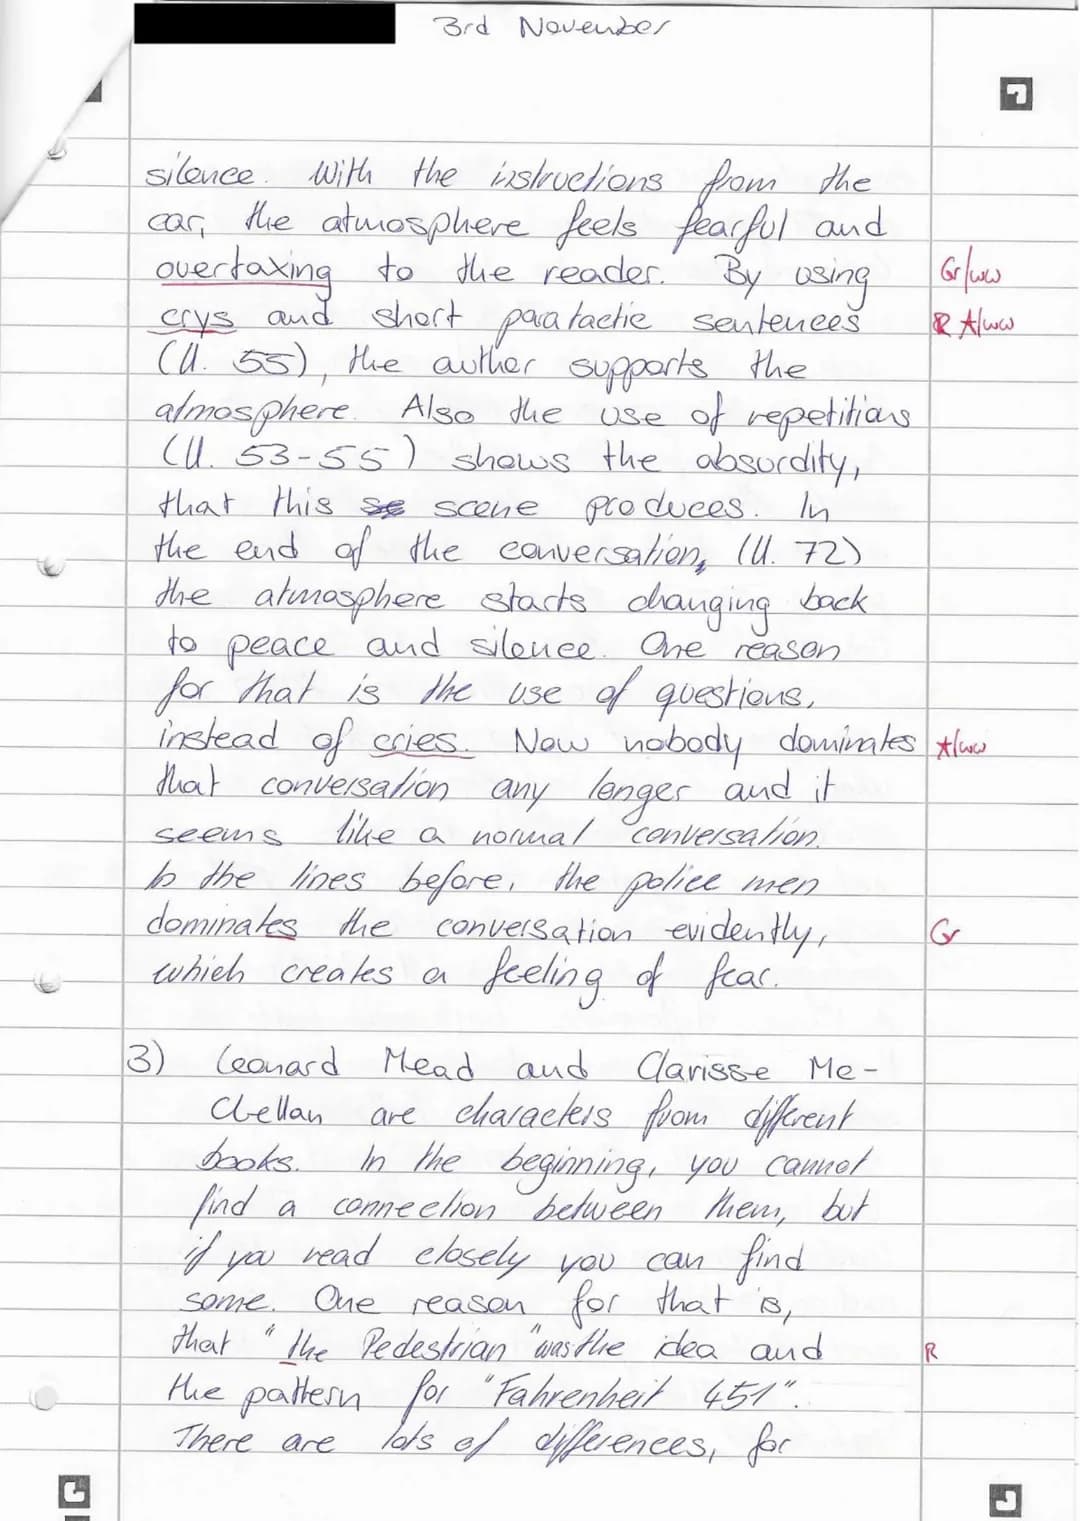 3rd November
silence. With the instructions from the
car, the atmosphere feels fearful and
overtaxing to the reader. By using Gr/ww
crys and short paratactic sentences R A/ww
(ll. 55), the author supports the
atmosphere. Also the use of repetitions
(ll. 53-55) shows the absurdity,
that this scene produces. In
the end of the conversation, (ll. 72)
the atmosphere starts changing back
to peace and silence. One reason
for that is the use of questions,
instead of cries. Now nobody dominates A/ww
that conversation any longer and it
seems like a normal conversation.
In the lines before, the police men
dominates the conversation evidently, Gr
which creates a feeling of fear.
3) Leonard Mead and Clarisse Mc-
Clellan are characters from different
books. In the beginning, you cannot
find a connection between them, but
if you read closely you can find
some. One reason for that is,
that "the Pedestrian" was the idea and R
the pattern for "Fahrenheit 451".
There are lots of differences, for